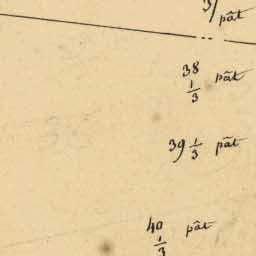 pât
38 1/3 pât
39 1/3 pât
40 1/3 pât